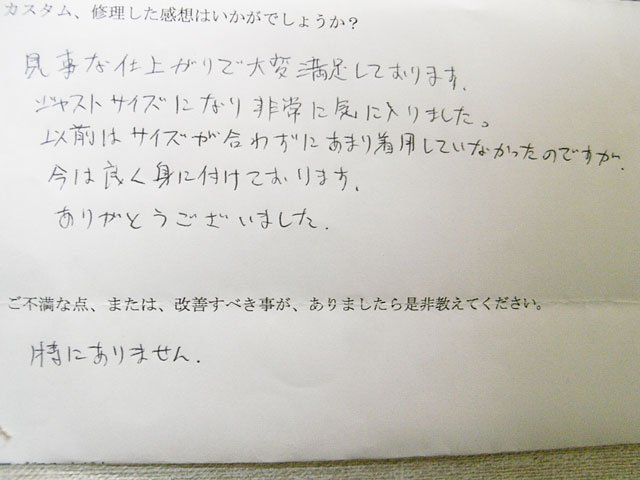 カスタム、修理した感想はいかがでしょうか?
見事な仕上がりで大変満足しております。
ジャストサイズになり非常に気に入りました。
以前はサイズが合わずにあまり着用していなかったのですが、
今は良く身に付けております。
ありがとうございました。
ご不満な点、または、改善すべき事が、ありましたら是非教えてください。
特にありません。